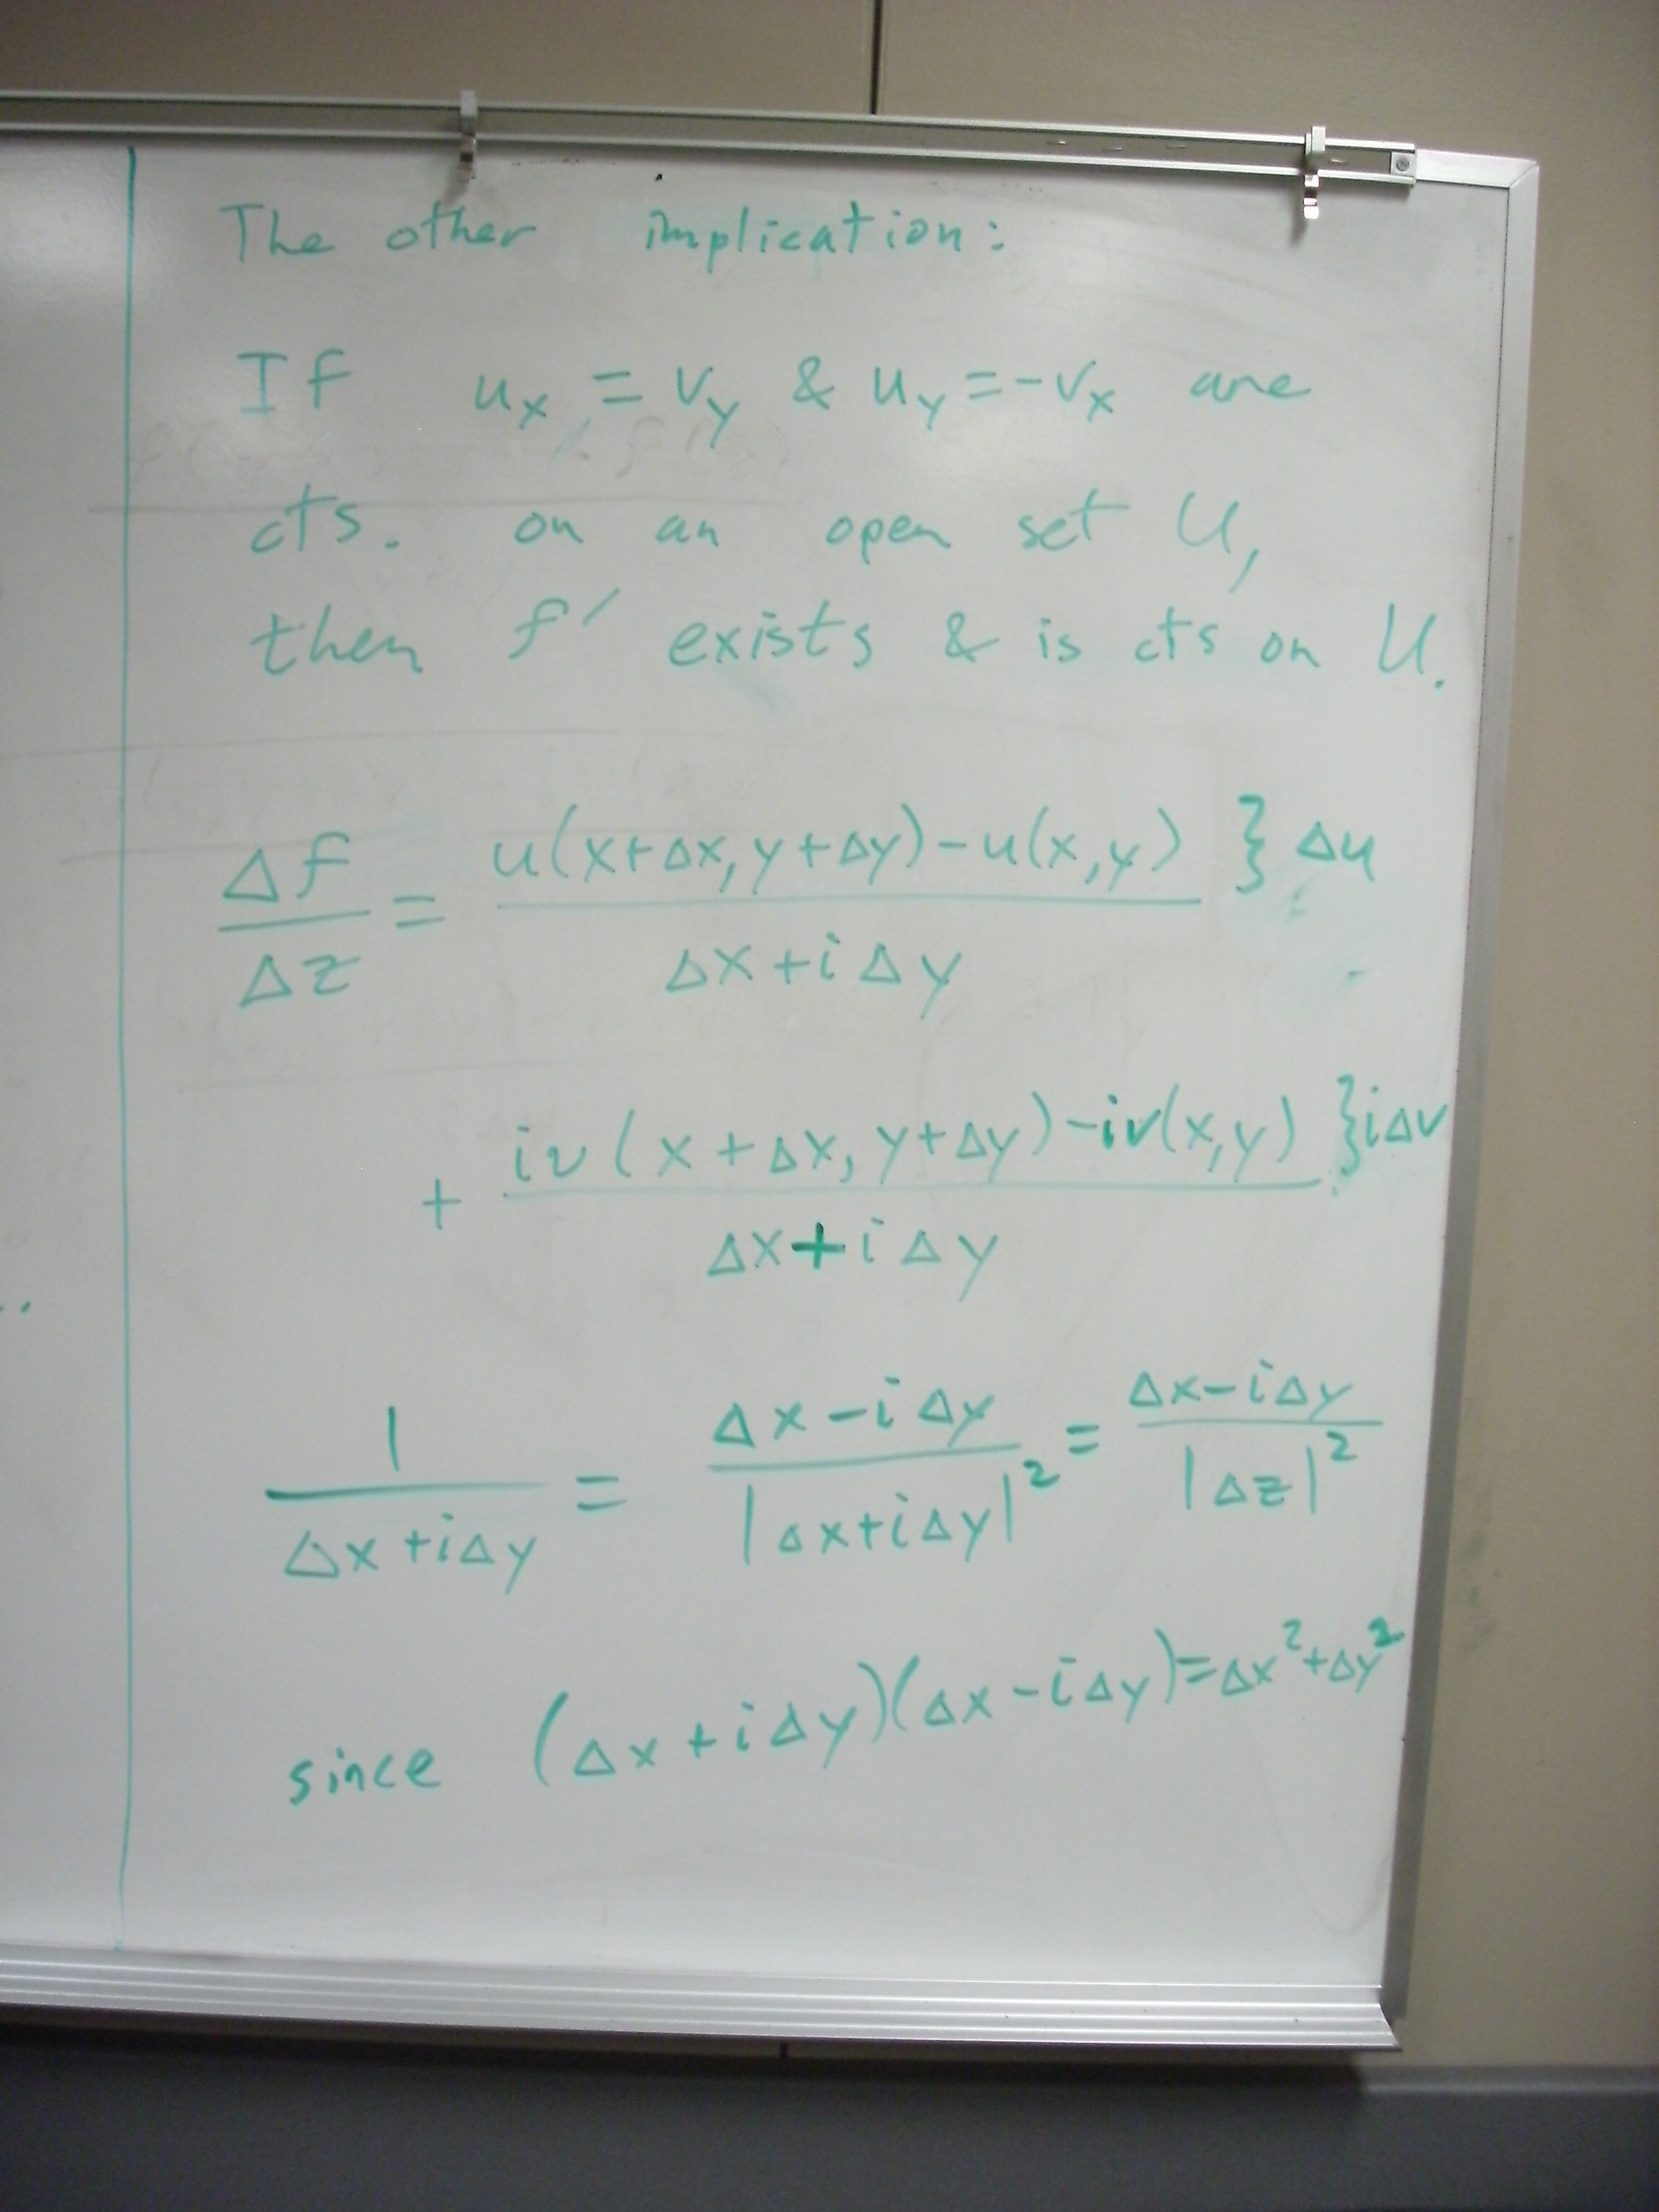 The other implication:
If u_x = v_y & u_y = -v_x are
cts. on an open set U,
then f' exists & is cts on U.
Δf/Δz = (u(x+Δx, y+Δy) - u(x,y))/(Δx + iΔy) } Δu
+ (iv(x+Δx, y+Δy) - iv(x,y))/(Δx + iΔy) } iΔv
1/(Δx + iΔy) = (Δx - iΔy)/|Δx + iΔy|² = (Δx - iΔy)/|Δz|²
since (Δx + iΔy)(Δx - iΔy) = Δx² + Δy²